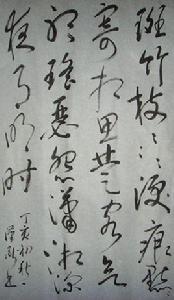 斑竹枝〻〻淚痕點〻
寄相思楚客欲
聽瑤瑟怨瀟湘深
夜月明时
丁亥初秋